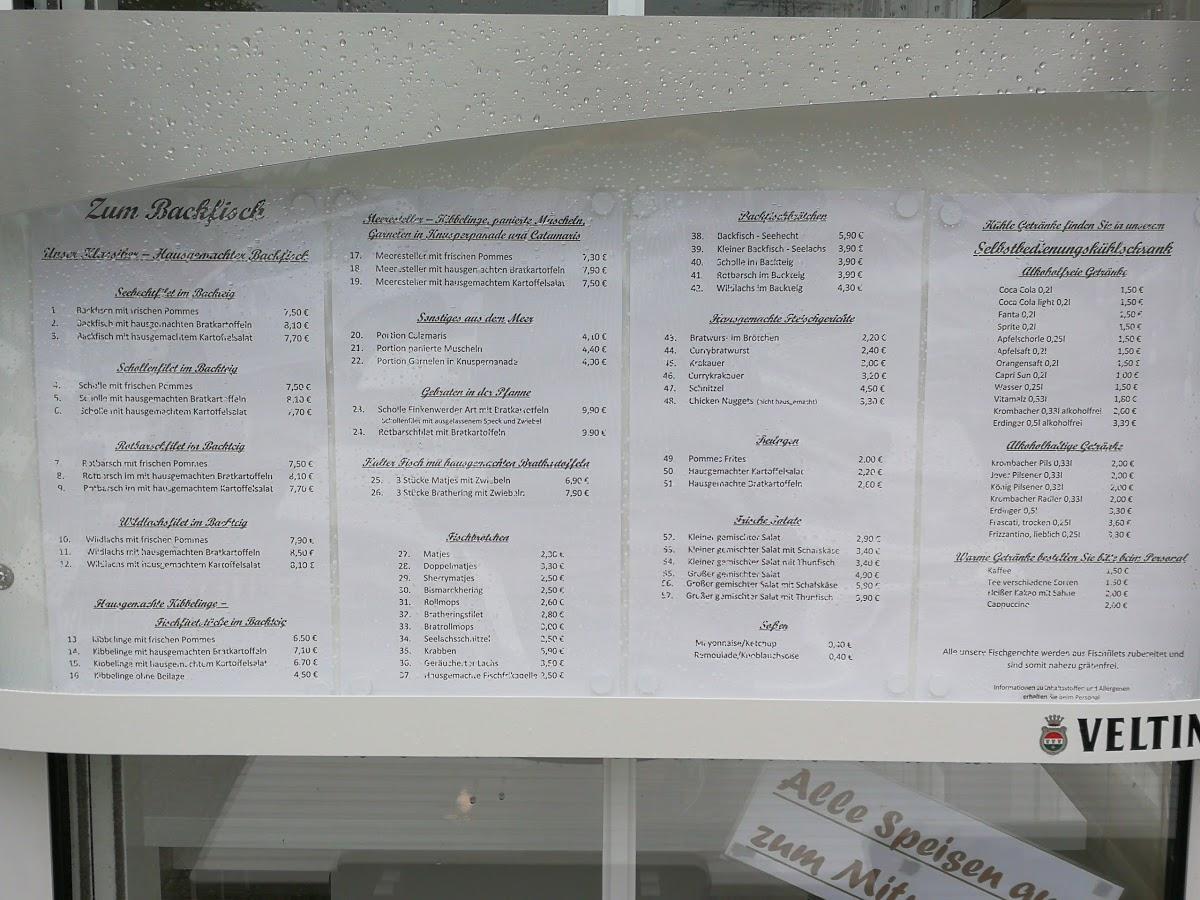 Zum Backfisch
Unser Klassiker – Hausgemachter Backfisch
Seehechtfilet im Backteig
1. Backfisch mit frischen Pommes 7,50 €
2. Backfisch mit hausgemachten Bratkartoffeln 8,10 €
3. Backfisch mit hausgemachtem Kartoffelsalat 7,70 €
Schollenfilet im Backteig
4. Scholle mit frischen Pommes 7,50 €
5. Scholle mit hausgemachten Bratkartoffeln 8,10 €
6. Scholle mit hausgemachtem Kartoffelsalat 7,70 €
Rotbarschfilet im Backteig
7. Rotbarsch mit frischen Pommes 7,50 €
8. Rotbarsch im mit hausgemachten Bratkartoffeln 8,10 €
9. Rotbarsch im mit hausgemachtem Kartoffelsalat 7,70 €
Wildlachsfilet im Backteig
10. Wildlachs mit frischen Pommes 7,90 €
11. Wildlachs mit hausgemachten Bratkartoffeln 8,50 €
12. Wildlachs mit hausgemachtem Kartoffelsalat 8,10 €
Hausgemachte Kibbelinge –
Fischfiletstücke im Backteig
13 Kibbelinge mit frischen Pommes 6,50 €
14. Kibbelinge mit hausgemachten Bratkartoffeln 7,10 €
15. Kibbelinge mit hausgemachtem Kartoffelsalat 6,70 €
16 Kibbelinge ohne Beilage 4,50 €
Meeresteller – Kibbelinge, panierte Muscheln,
Garnelen in Knusperpanade und Calamaris
17. Meeresteller mit frischen Pommes 7,30 €
18 Meeresteller mit hausgemachten Bratkartoffeln 7,90 €
19. Meeresteller mit hausgemachtem Kartoffelsalat 7,50 €
Sonstiges aus dem Meer
20. Portion Calamaris 4,10 €
21. Portion panierte Muscheln 4,40 €
22. Portion Garnelen in Knusperpanade
Gebraten in der Pfanne
23. Scholle Finkenwerder Art mit Bratkartoffeln 9,90 €
Schollenfilet mit ausgelassenem Speck und Zwiebel
24. Rotbarschfilet mit Bratkartoffeln 9,90 €
Kalter Fisch mit hausgemachten Bratkartoffeln
25. 3 Stücke Matjes mit Zwiebeln 6,90 €
26. 3 Stücke Brathering mit Zwiebeln 7,90 €
Fischbrötchen
27. Matjes 2,30 €
28. Doppelmatjes 3,30 €
29. Sherrymatjes 2,50 €
30. Bismarckhering 2,50 €
31. Rollmops 2,60 €
32. Bratheringsfilet 2,80 €
33. Bratrollmops
34. Seelachsschnitzel 2,50 €
35. Krabben 5,90 €
36. Geräucherter Lachs 3,50 €
37 Hausgemachte Fischfrikadelle 2,50 €
Backfischbrötchen
38. Backfisch - Seehecht 5,90 €
39. Kleiner Backfisch - Seelachs 3,90 €
40. Scholle im Backteig 3,90 €
41. Rotbarsch im Backteig 3,90 €
42. Wildlachs im Backteig 4,30 €
Hausgemachte Fleischgerichte
43. Bratwurst im Brötchen 2,20 €
44. Currybratwurst 2,40 €
45. Krakauer
46. Currykrakauer 3,20 €
47. Schnitzel 4,50 €
48. Chicken Nuggets (nicht hausgemacht) 3,30 €
Beilagen
49 Pommes Frites 2,00 €
50 Hausgemachter Kartoffelsalat 2,20 €
51 Hausgemachte Bratkartoffeln 2,60 €
Frische Salate
52. Kleiner gemischter Salat 2,90 €
53. Kleiner gemischter Salat mit Schafskäse 3,40 €
54. Kleiner gemischter Salat mit Thunfisch 3,40 €
55. Großer gemischter Salat 4,90 €
56. Großer gemischter Salat mit Schafskäse 5,90 €
57. Großer gemischter Salat mit Thunfisch 5,90 €
Soßen
Mayonnaise/Ketchup
Remoulade/Knoblauchsoße 0,40 €
Kühle Getränke finden Sie in unserem
Selbstbedienungskühlschrank
Alkoholfreie Getränke
Coca Cola 0,2l 1,50 €
Coca Cola light 0,2l 1,50 €
Fanta 0,2l 1,50 €
Sprite 0,2l 1,50 €
Apfelschorle 0,25l 1,50 €
Apfelsaft 0,2l 1,50 €
Orangensaft 0,2l 1,50 €
Capri Sun 0,2l 1,00 €
Wasser 0,25l 1,50 €
Vitamalz 0,33l 1,80 €
Krombacher 0,33l alkoholfrei 2,00 €
Erdinger 0,5l alkoholfrei 3,30 €
Alkoholhaltige Getränke
Krombacher Pils 0,33l 2,00 €
Jever Pilsener 0,33l 2,00 €
König Pilsener 0,33l 2,00 €
Krombacher Radler 0,33l 2,00 €
Erdinger 0,5l 3,30 €
Frascati, trocken 0,25l 3,60 €
Frizzantino, lieblich 0,25l 3,30 €
Warme Getränke bestellen Sie bitte beim Personal
Kaffee 1,50 €
Tee verschiedene Sorten 1,50 €
Heißer Kakao mit Sahne 2,00 €
Cappuccino 2,00 €
Alle unsere Fischgerichte werden aus Fischfilets zubereitet und
sind somit nahezu grätenfrei.
Informationen zu Inhaltsstoffen und Allergenen
erhalten Sie beim Personal
VELTIN
Alle Speisen
zum